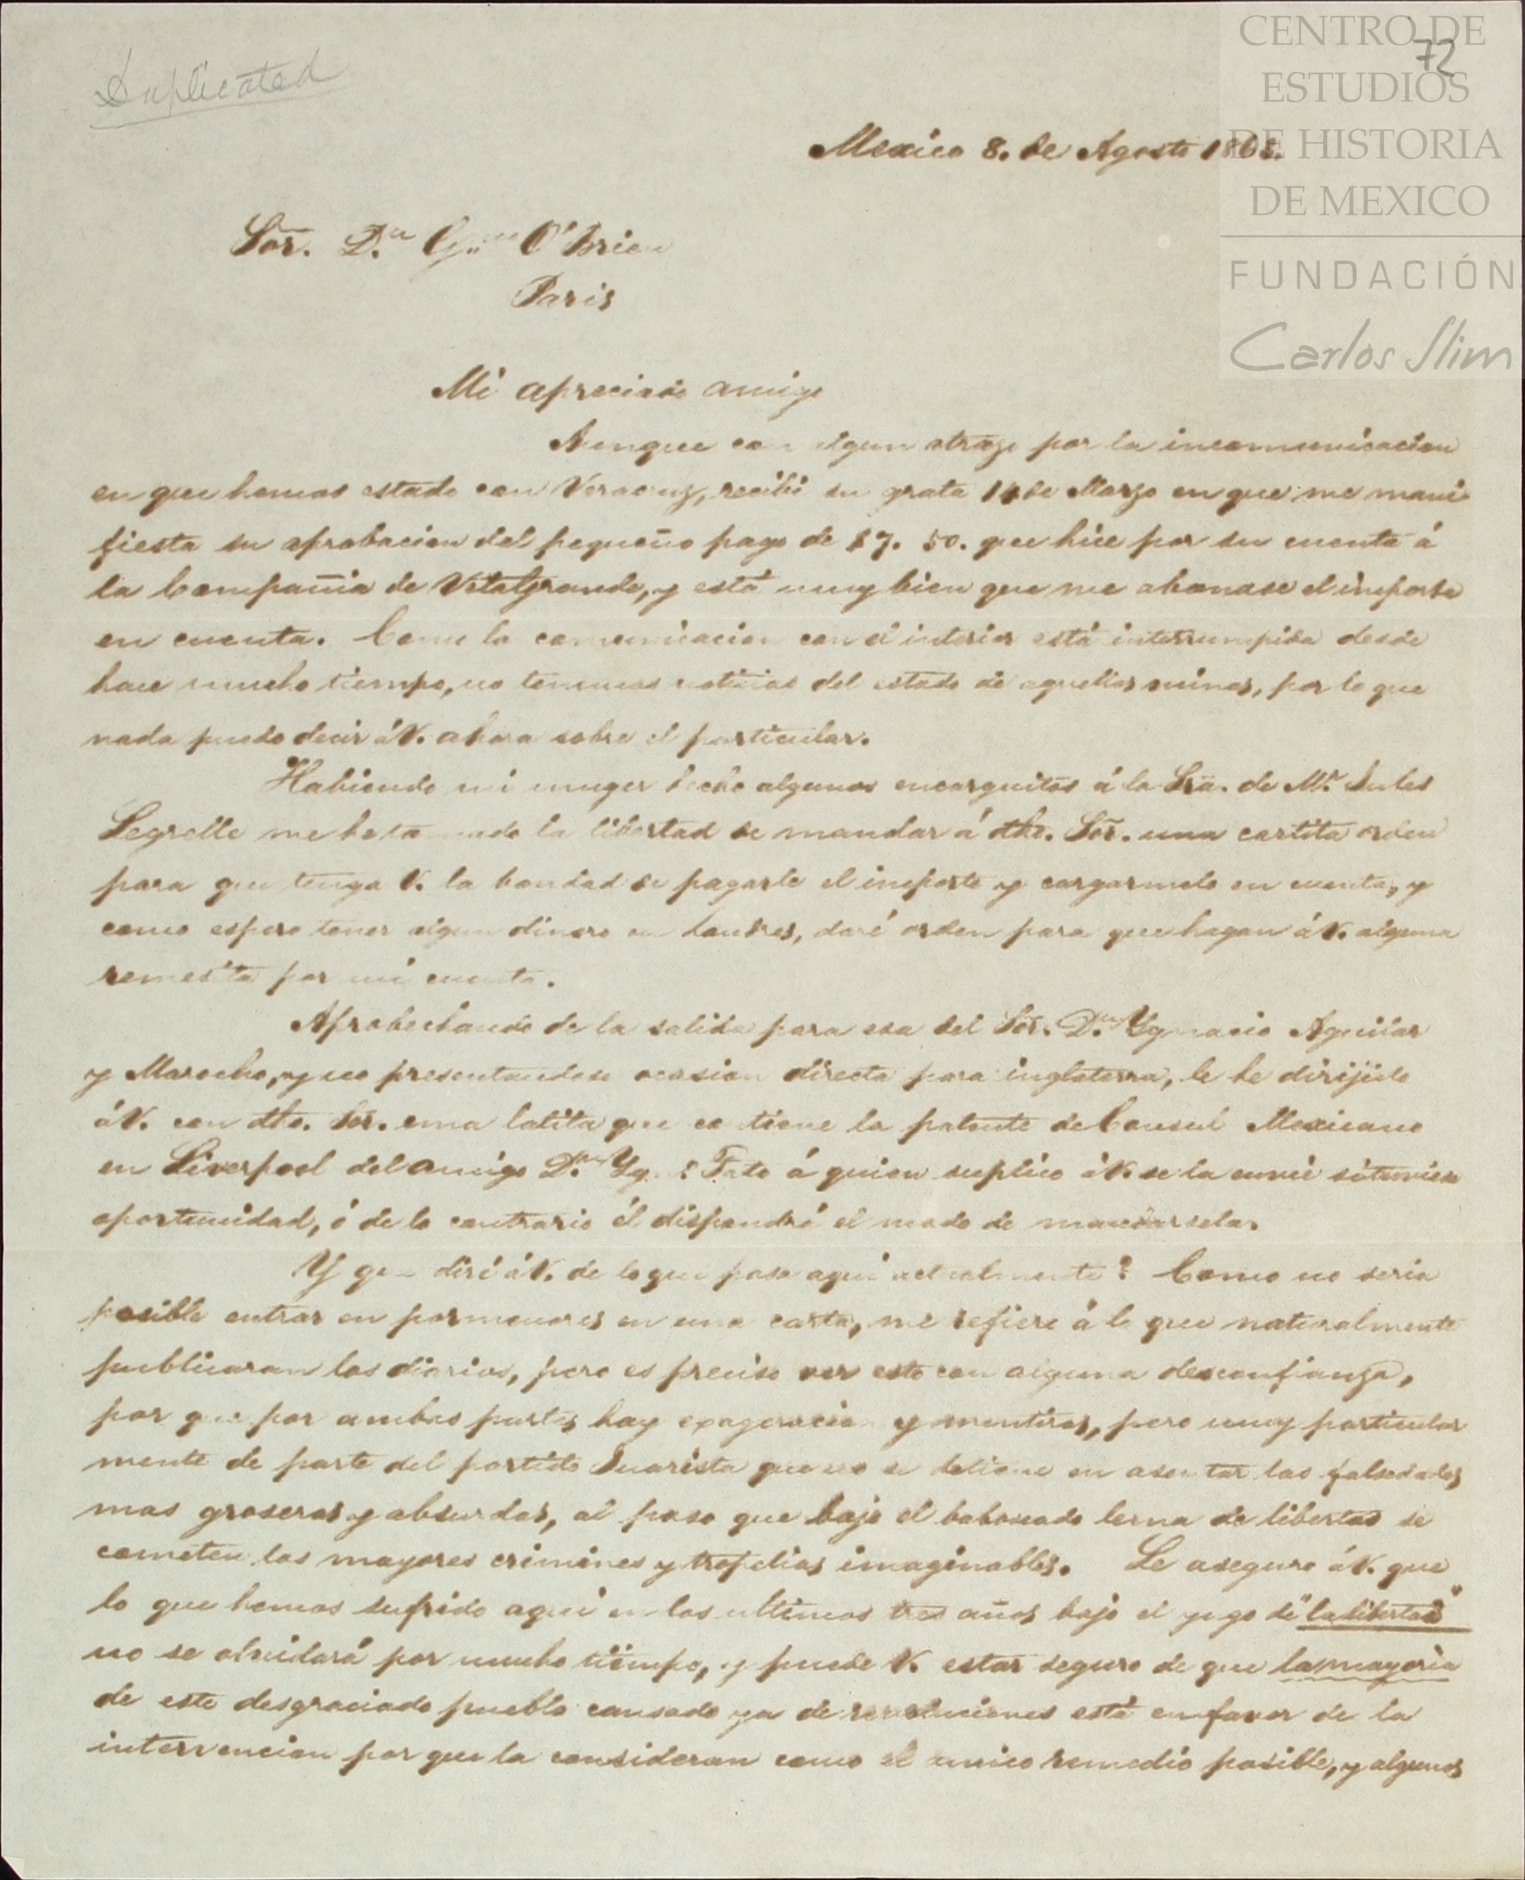 Duplicated
72
CENTRO DE
ESTUDIOS
DE HISTORIA
DE MEXICO
FUNDACIÓN
Carlos Slim
Mexico 8. de Agosto 186
Sor. D.n O'Brien
Paris
Mi apreciado amigo
Aunque con algun atraso por la incomunicacion
en que hemos estado con Veracruz, recibi su grata 14 de Marzo en que me mani
fiesta su aprobacion del pequeño pago de $7. 50. que hice por su cuenta á
la Compañia de Vetalgrande, y está muy bien que me abonase el importe
en cuenta. Como la comunicacion con el interior está interrumpida desde
hace mucho tiempo, no tenemos noticias del estado de aquellas minas, por lo que
nada puedo decir á V. ahora sobre el particular.
Habiendo mi muger hecho algunos encarguitos á la Sra. de Mr. Jules
Legrelle me he tomado la libertad de mandar á dho. Sor. una cartita orden
para que tenga V. la bondad de pagarle el importe y cargarmelo en cuenta, y
como espero tener algun dinero en Londres, daré orden para que hagan á V. alguna
remesita por mi cuenta.
Aprobechando de la salida para esa del Sor. D.n Ygnacio Aguilar
y Marocho, y no presentandose ocasion directa para inglaterra, le he dirijido
á V. con dho. Sor. una latita que contiene la patente de Consul Mexicano
en Liverpool del amigo D.n á quien suplico á V. se la envié si tuviese
oportunidad, ó de lo contrario él dispondrá el modo de mandarsela.
Y que diré á V. de lo que pasa aqui actualmente? Como no seria
posible entrar en pormenores en una carta, me refiero á lo que naturalmente
publicaran los diarios, pero es preciso ver esto con alguna desconfianza,
por que por ambas partes hay exageracion y mentiras, pero muy particular
mente de parte del partido Juarista que no se detiene en asentar las falsedades
mas groseras y absurdas, al paso que bajo el baboseado lema de libertad se
cometen los mayores crimines y tropelias imaginables. Le aseguro á V. que
lo que hemos sufrido aqui en los ultimos tres años bajo el yugo de "la libertad"
no se olvidará por mucho tiempo, y puede V. estar seguro de que la mayoria
de este desgraciado pueblo cansado ya de revoluciones está en favor de la
intervencion por que la consideran como el unico remedio posible, y algunos